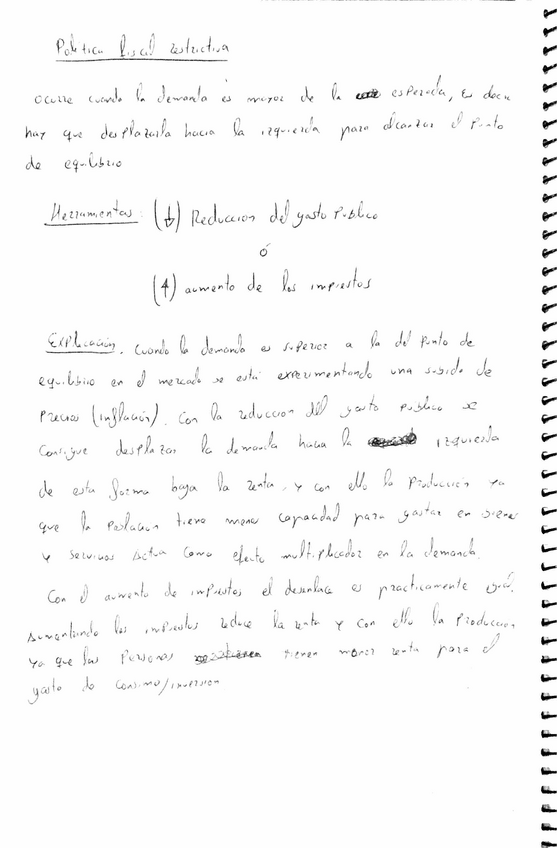 Politica fiscal restrictiva
ocurre cuando la demanda es mayor de la esperada, Es decir
hay que desplazarla hacia la izquierda para alcanzar el punto
de equilibrio
Herramientas: (↓) Reduccion del gasto publico
ó
(↑) aumento de los impuestos
Explicación. Cuando la demanda es superior a la del punto de
equilibrio en el mercado se está experimentando una subida de
precios (inflación). Con la reduccion del gasto publico se
consigue desplazar la demanda hacia la izquierda
de esta forma baja la renta, y con ello la produccion ya
que la poblacion tiene menor capacidad para gastar en bienes
y servicios actua como efecto multiplicador en la demanda.
Con el aumento de impuestos el desenlace es practicamente igual.
aumentando los impuestos reduce la renta y con ello la produccion
ya que las personas tienen menor renta para el
gasto de consumo/inversion